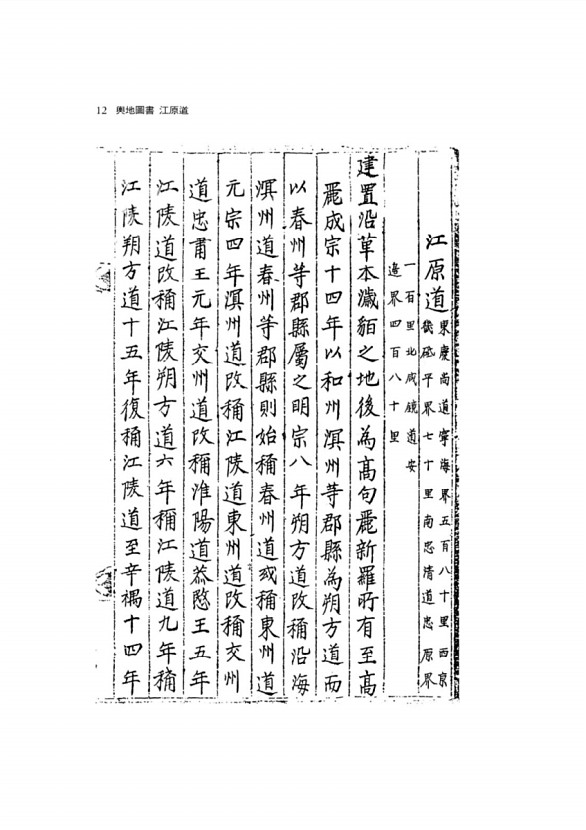 12 輿地圖書 江原道
江原道 東慶尚道寧海界五百八十里西京
畿砥平界七十里南忠清道忠原界
一百里北咸鏡道安
邊界四百八十里
建置沿革本濊貊之地後為高句麗新羅所有至高
麗成宗十四年以和州溟州等郡縣為朔方道而
以春州等郡縣屬之明宗八年朔方道改稱沿海
溟州道春州等郡縣則始稱春州道或稱東州道
元宗四年溟州道改稱江陵道東州道改稱交州
道忠肅王元年交州道改稱淮陽道恭愍王五年
江陵道改稱江陵朔方道六年稱江陵道九年稱
江陵朔方道十五年復稱江陵道至辛禑十四年